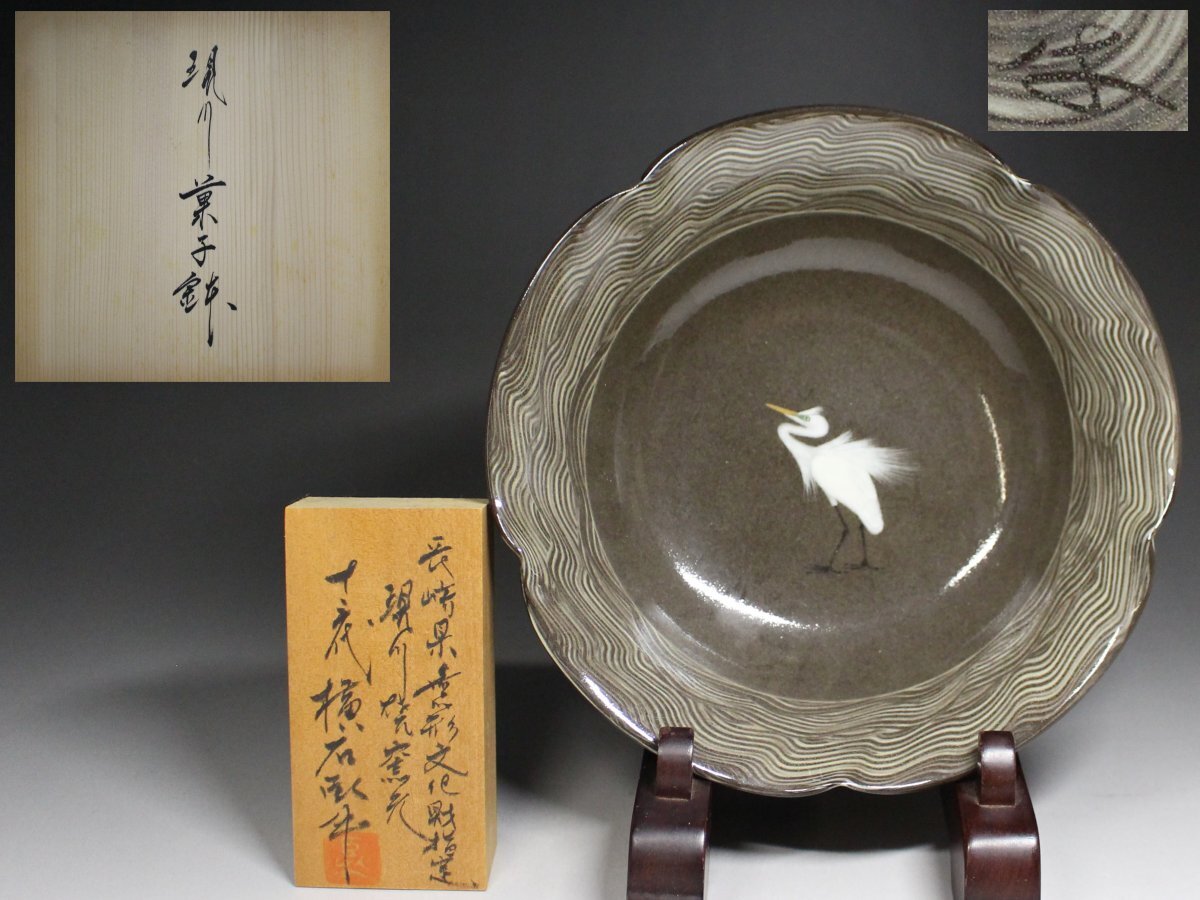 現川
菓子鉢
長崎県無形文化財指定
現川焼窯元
十三代 横石臥牛